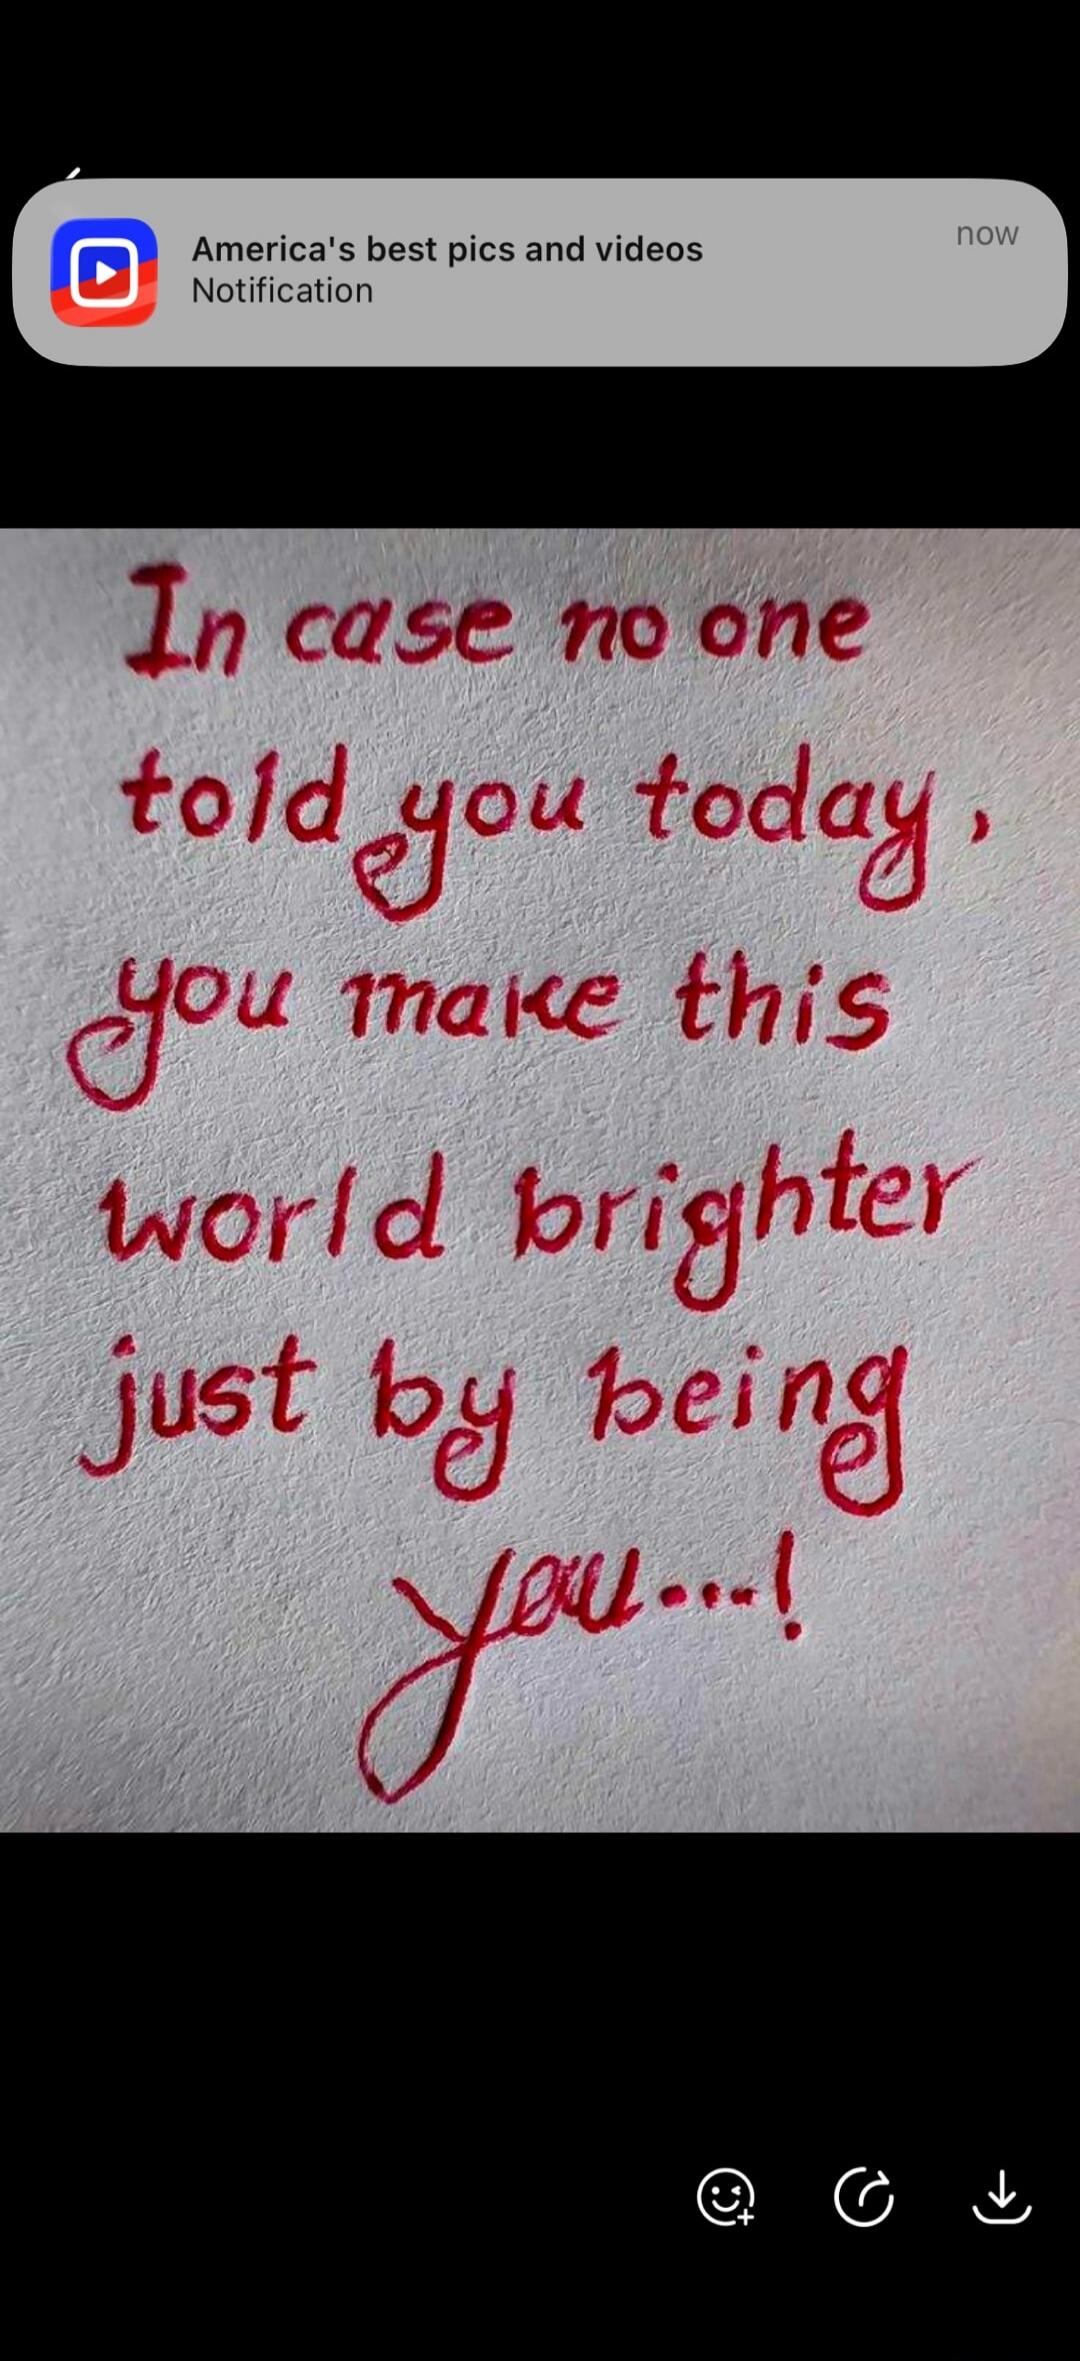 America's best pics and videos
now
Notification
In case no one
told you today,
you make this
world brighter
just by being
you...!